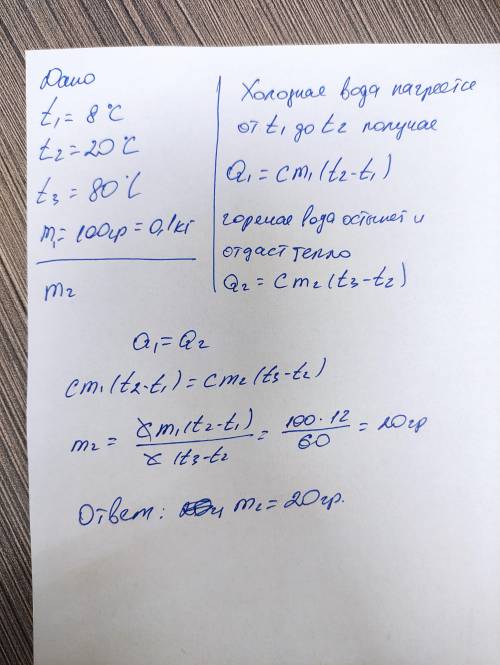 Дано
t₁ = 8°C
t₂ = 20°C
t₃ = 80°C
m₁ = 100гр = 0,1кг
m₂
Холодная вода нагреется
от t₁ до t₂ получае
Q₁ = cm₁(t₂-t₁)
горячая вода остынет и
отдаст тепло
Q₂ = Cm₂(t₃-t₂)
Q₁ = Q₂
cm₁(t₂-t₁) = cm₂(t₃-t₂)
m₂ = c m₁(t₂-t₁) / c (t₃-t₂ = 100·12 / 60 = 20гр
Ответ: m₂ = 20гр.